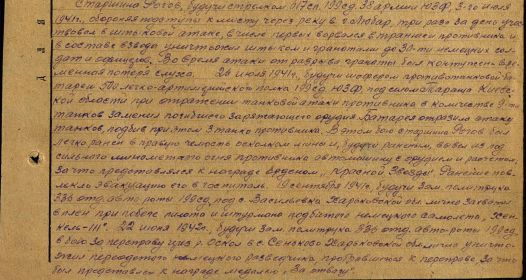 Старшина Рогов, будучи стрелком 617сп. 199сд. 38 армии ЮЗФ, 3-го июля
1941г., обороняя подступы к мосту через реку в г. три раза за день участ
вовал в штыковой атаке, в числе первых ворвался в траншеи противника и,
в составе взвода уничтожил штыком и гранатами до 30-ти немецких сол-
дат и офицеров. Во время атаки от разрыва гранаты был контужен вре-
менная потеря слуха. 26 июля 1941г., будучи шофером противотанковой ба-
тареи легко-артиллерийского полка 199сд. ЮЗФ, под селом Тараща Киевс-
кой области при отражении танковой атаки противника в количестве 9-ти
танков заменил погибшего заряжающего орудия. Батарея отразила атаку
танков, подбив при этом 3 танка противника. В этом бою старшина Рогов был
легко ранен в правую челюсть осколком мины и, будучи раненым, вывез из под
сильного минометного огня противника автомашину с орудием и расчетом,
за что представлялся к награде орденом, "Красной Звезды". Ранение пов-
лекло эвакуацию его в госпиталь. 19 сентября 1941г., будучи зам. политрука
336 отд. авто-роты 199сд. под с. Васильевка Харьковской обл. лично захватил
в плен при побеге пилота и штурмана подбитого немецкого самолета, "Хен-
кель-111". 22 июня 1942г., будучи зам. политрука 336 отд. авто-роты 199сд.
в бою за переправу через р. Оскол в с. Сеньково Харьковской обл. лично уничто-
жил переодетого немецкого разведчика, пробравшегося к переправе, за что
был представлен к награде медалью, "За отвагу".
для